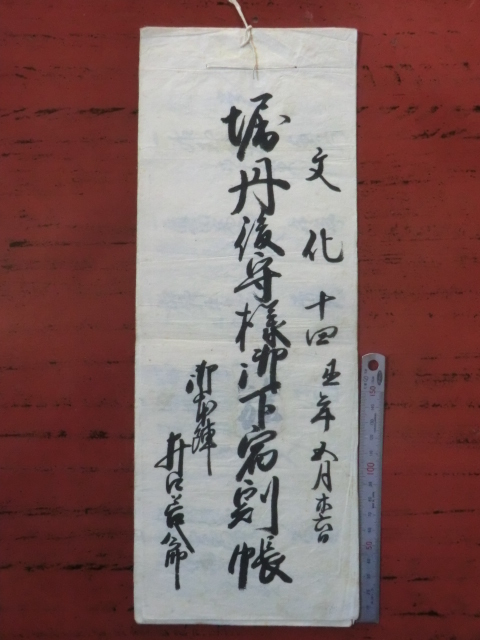 文化十四丑年五月廿六日
堀丹後守様御下宿割帳
御本陣
井口